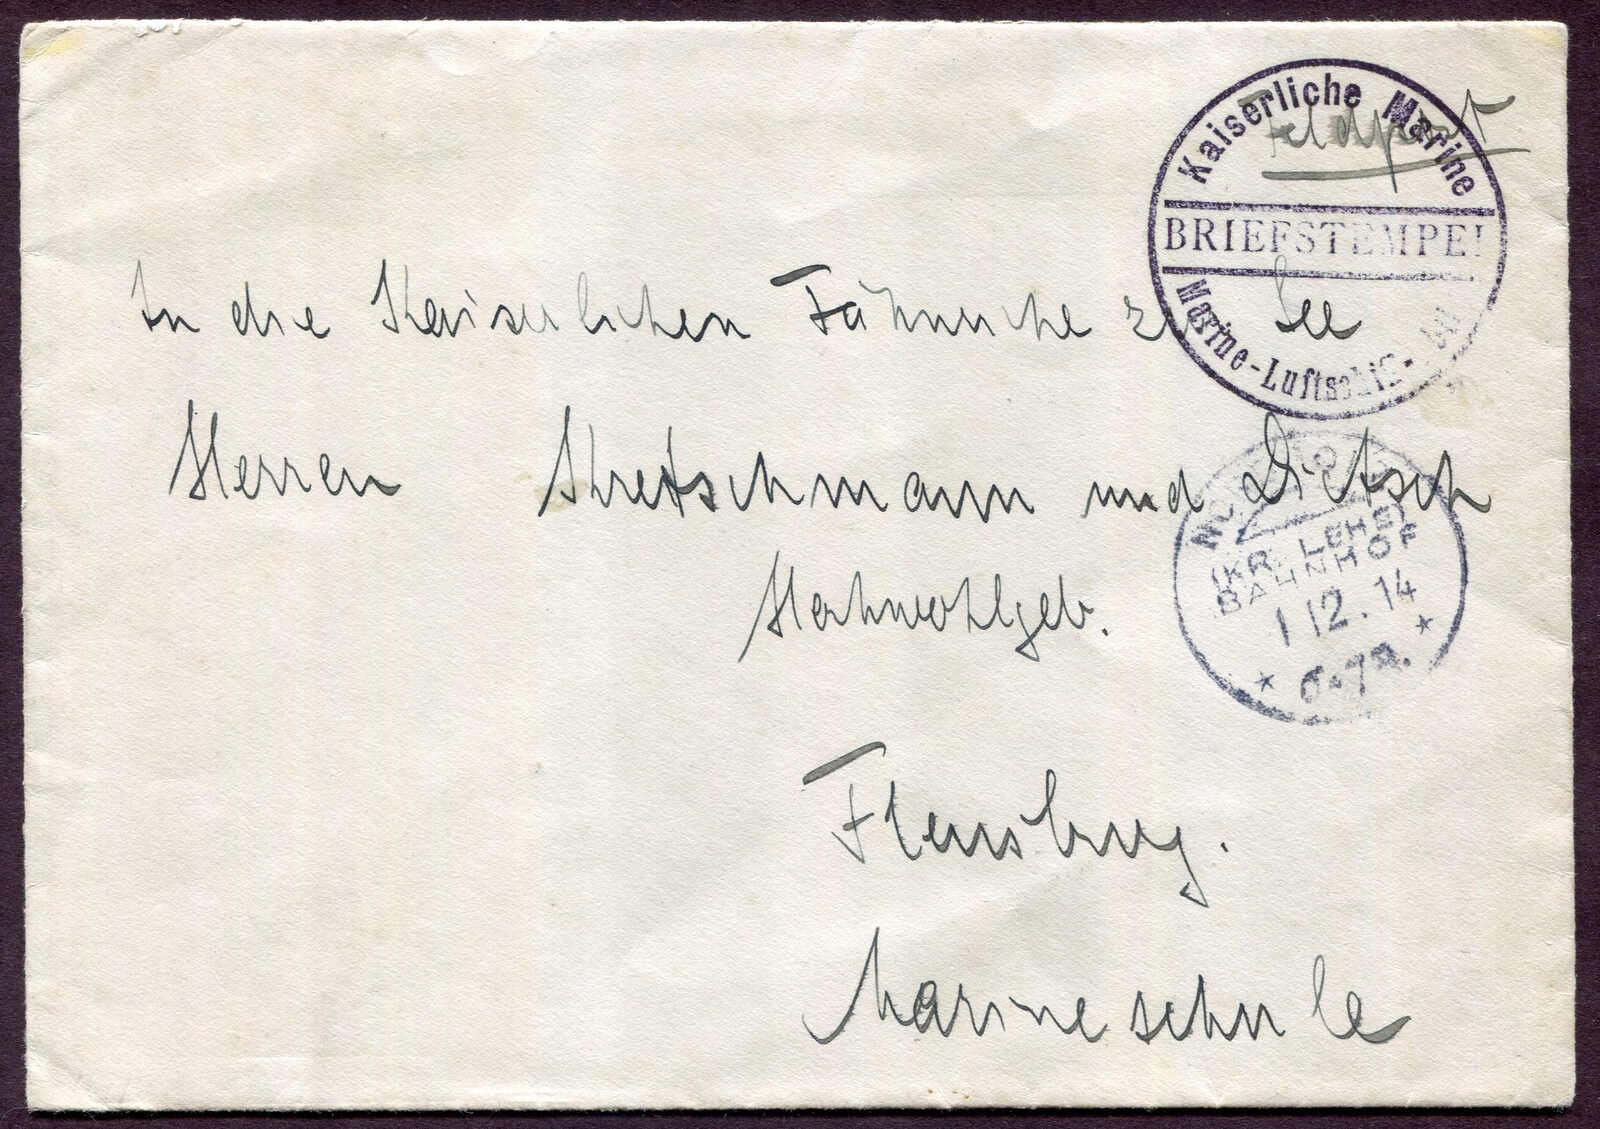 Kaiserliche Marine
Feldpost
BRIEFSTEMPEL
Marine-Luftschiff-
An die Kaiserlichen Fähnriche z. See
Herren Kretschmann und Dietsch
Hochwohlgeb.
(KR. LEHE)
BAHNHOF
1 12.14
6-7N.
Flensburg.
Marineschule